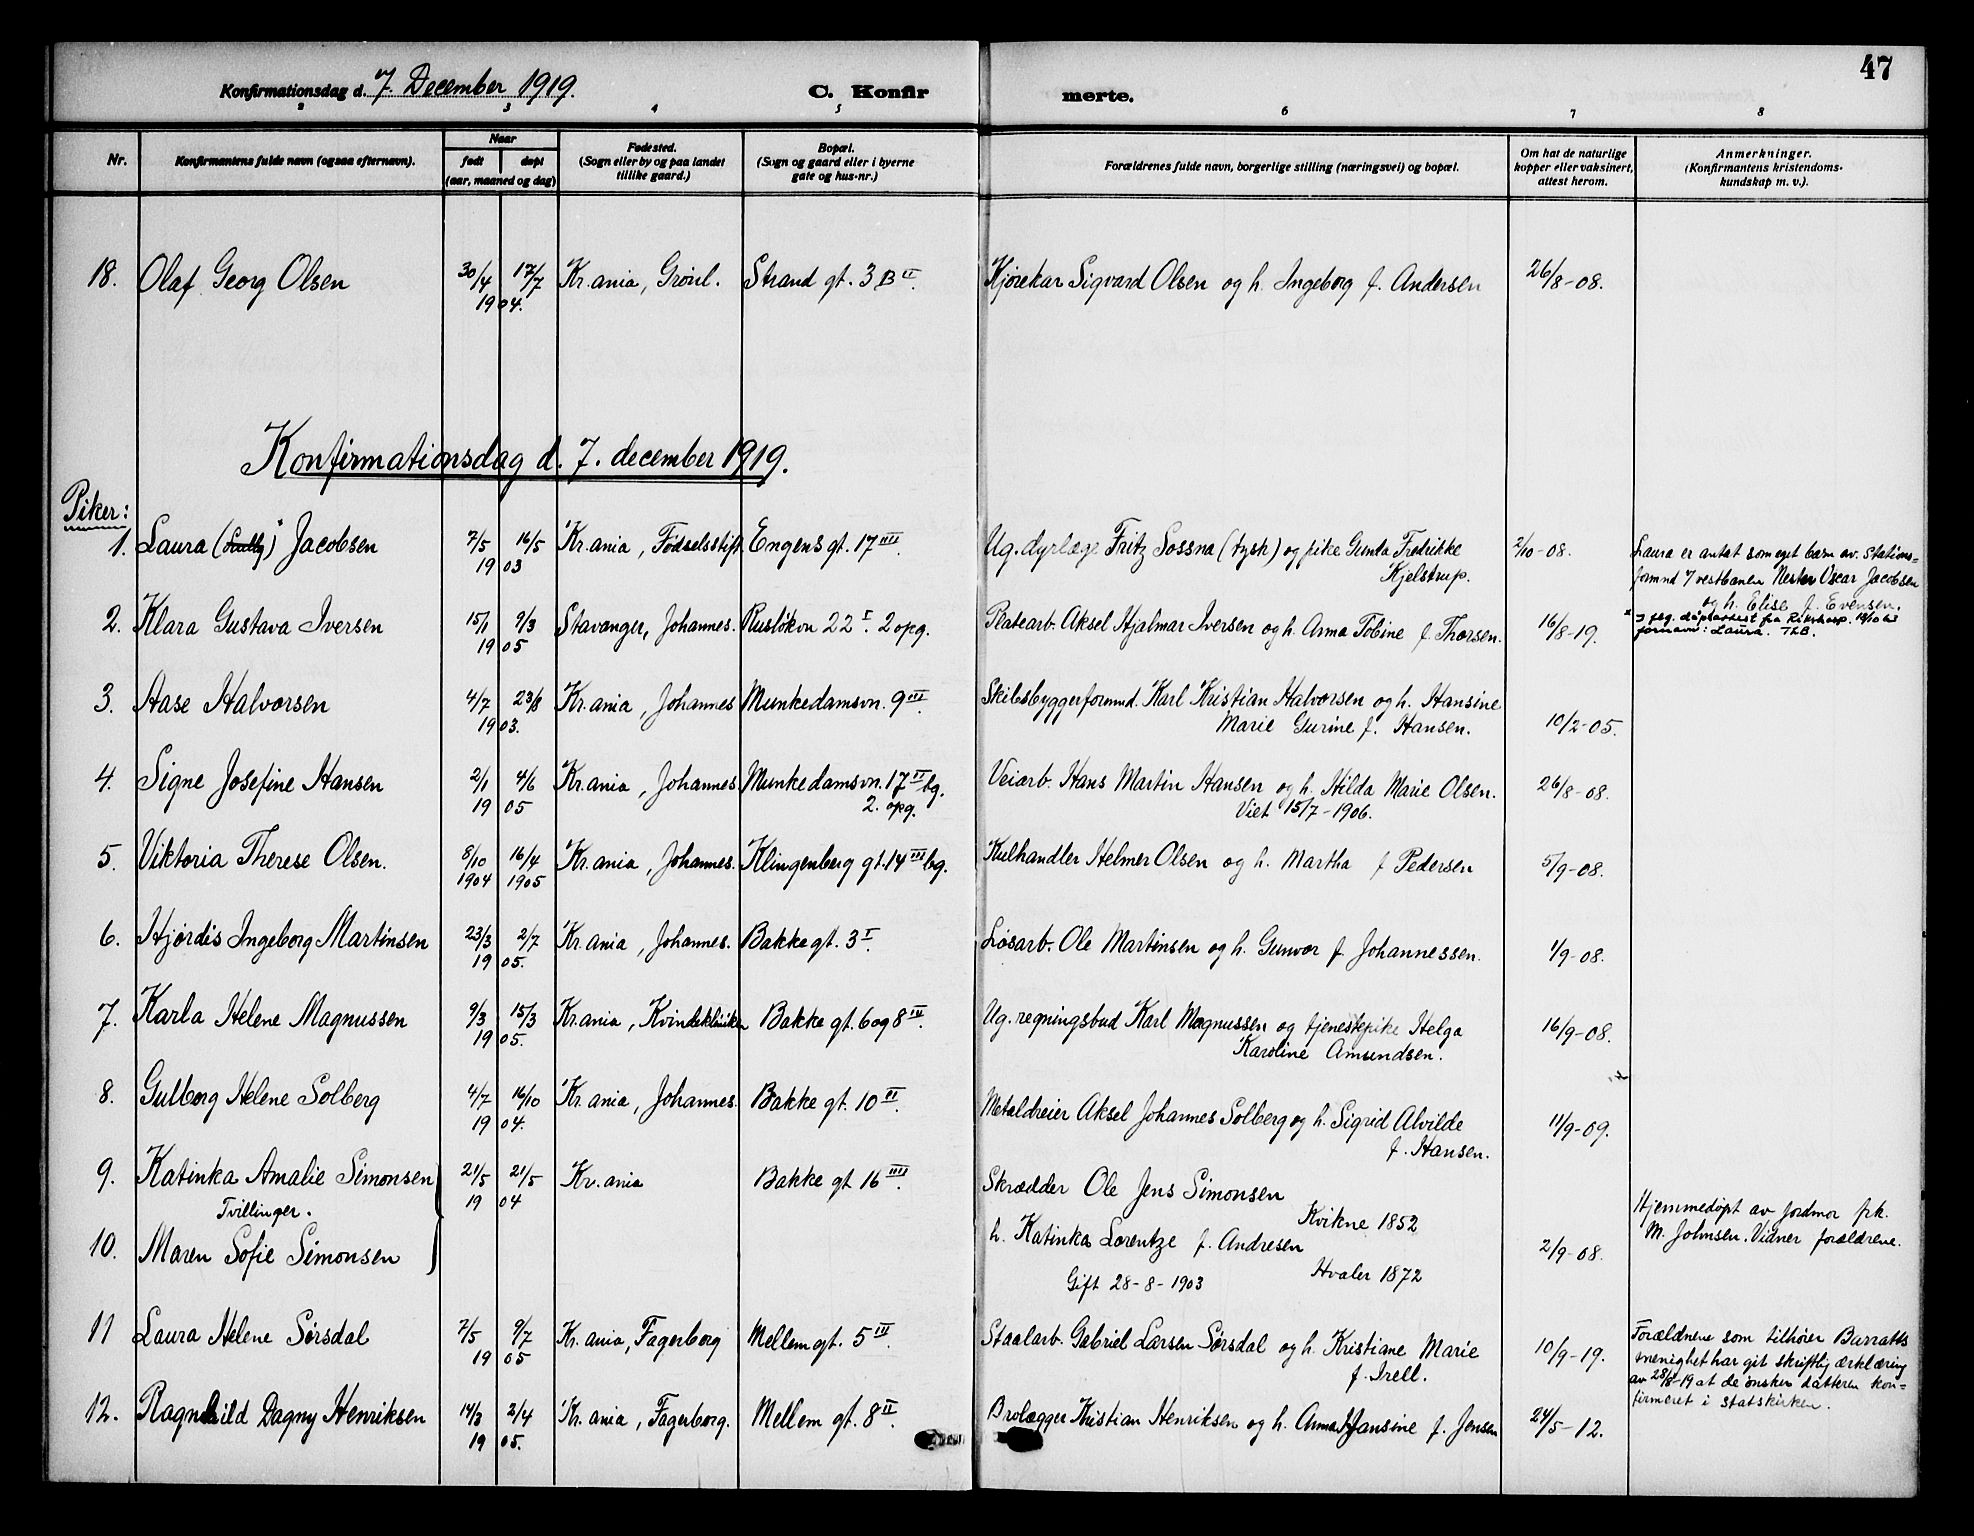 47
Konfirmationsdag d. 7. December 1919.
C. Konfir
merte.
2 3 4 5 6 7 8
Nr.
Konfirmantens fulde navn (ogsaa efternavn).
Naar
født døpt
(aar, maaned og dag)
Fødested.
(Sogn eller by og paa landet
tillike gaard.)
Bopæl.
(Sogn og gaard eller i byerne
gate og hus-nr.)
Forældrenes fulde navn, borgerlige stilling (næringsvei) og bopæl.
Om hat de naturlige
kopper eller vaksinert,
attest herom.
Anmerkninger.
(Konfirmantens kristendoms-
kundskap m. v.).
18. Olaf Georg Olsen 30/4 17/7 Kr.ania, Grønl. Strand gt. 3 B II. Kjørekar Sigvard Olsen og h. Ingeborg f. Andersen 26/8-08.
19 04.
Konfirmationsdag d. 7. december 1919.
Piker:
1. Laura (Lully) Jacobsen 7/5 16/5 Kr.ania, Fødselsstift. Engens gt. 17 III. Ug. dyrlæge Fritz Sossna (tysk) og pike Gunda Fredrikke 2/10-08.
19 03 Kjelstrup.
Laura er antat som eget barn av stations-
formnd v/vestbanen Oscar Jacobsen
og h. Elise f. Evensen.
2. Klara Gustava Iversen 15/1 9/3 Stavanger, Johannes. Rusløkvn 22 I. 2 opg. Platearb. Aksel Hjalmar Iversen og h. Anna Tobine f. Thorsen. 16/8-19.
19 05
x) flg. dåpsattest fra Rikshosp. 19/10 63
fornavn: Laura. ThB.
3. Aase Halvorsen 4/7 23/8 Kr.ania, Johannes Munkedamsvn. 9 III. Skibsbyggerformnd. Karl Kristian Halvorsen og h. Hansine
19 03. Marie Gurine f. Hansen. 10/2-05.
4. Signe Josefine Hansen 2/1 4/6 Kr.ania, Johannes. Munkedamsvn. 17 II bg. Veiarb. Hans Martin Hansen og h. Hilda Marie Olsen. 26/8-08.
19 05 2. opg. Viet 15/7-1906.
5. Viktoria Therese Olsen. 8/10 16/4 Kr.ania, Johannes. Klingenberg gt. 14 III bg. Kulhandler Helmer Olsen og h. Martha f Pedersen 5/9-08.
1904 1905
6. Hjørdis Ingeborg Martinsen 23/3 2/7 Kr.ania, Johannes. Bakke gt. 3 I. Løsarb. Ole Martinsen og h. Gunvor f. Johannessen. 1/9-08.
19 05.
7. Karla Helene Magnussen 9/3 15/3 Kr.ania, Kvindeklinikken Bakke gt. 6 og 8 IV. Ug. regningsbud Karl Magnussen og tjenestepike Helga 16/9-08.
19 05. Karoline Amundsen.
8. Gulborg Helene Solberg 4/7 16/10 Kr.ania, Johannes. Bakke gt. 10 II. Metaldreier Aksel Johannes Solberg og h. Sigrid Alvilde 11/9-09.
19 04. f. Hansen.
9. Katinka Amalie Simonsen 21/5 21/5 Kr.ania Bakke gt 16 IIII. Skrædder Ole Jens Simonsen
Tvillinger. 19 04 Kvikne 1852
10. Maren Sofie Simonsen h. Katinka Lorentze f. Andresen 2/9-08.
Hvaler 1872
Gift 28-8-1903
Hjemmedøpt av jordmor frk.
M. Johnsen. Vidner forældrene.
11 Laura Helene Sørsdal 7/5 9/7 Kr.ania, Fagerborg Mellem gt. 5 III. Staalarb. Gabriel Larsen Sørsdal og h. Kristiane Marie 10/9-19.
19 05 f. Irell.
Forældrene som tilhører Barratts
menighet har git skriftlig erklæring
av 28/8-19 at de ønsker datteren kon-
firmeret i statskirken.
12. Ragnhild Dagny Henriksen 14/3 2/4 Kr.ania, Fagerborg. Mellem gt. 8 II. Brolægger Kristian Henriksen og h. Anna Jansine f. Jensen 24/5-12.
19 05.